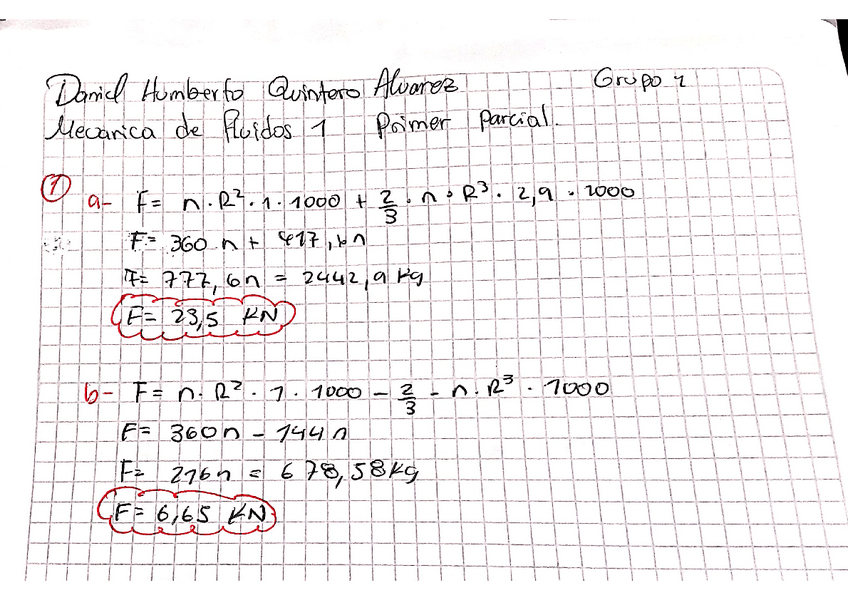 Daniel Humberto Quintero Alvarez Grupo 1
Mecanica de fluidos 1 Primer parcial.
1 a- F= π · R² · 1 · 1000 + 2/3 · π · R³ · 2,9 · 1000
F= 360 π + 417,6π
F= 777,6π = 2442,9 kg
F= 23,5 KN
b- F= π · R² · 1 · 1000 - 2/3 - π · R³ · 1000
F= 360π - 144π
F= 216π = 678,58 kg
F= 6,65 KN